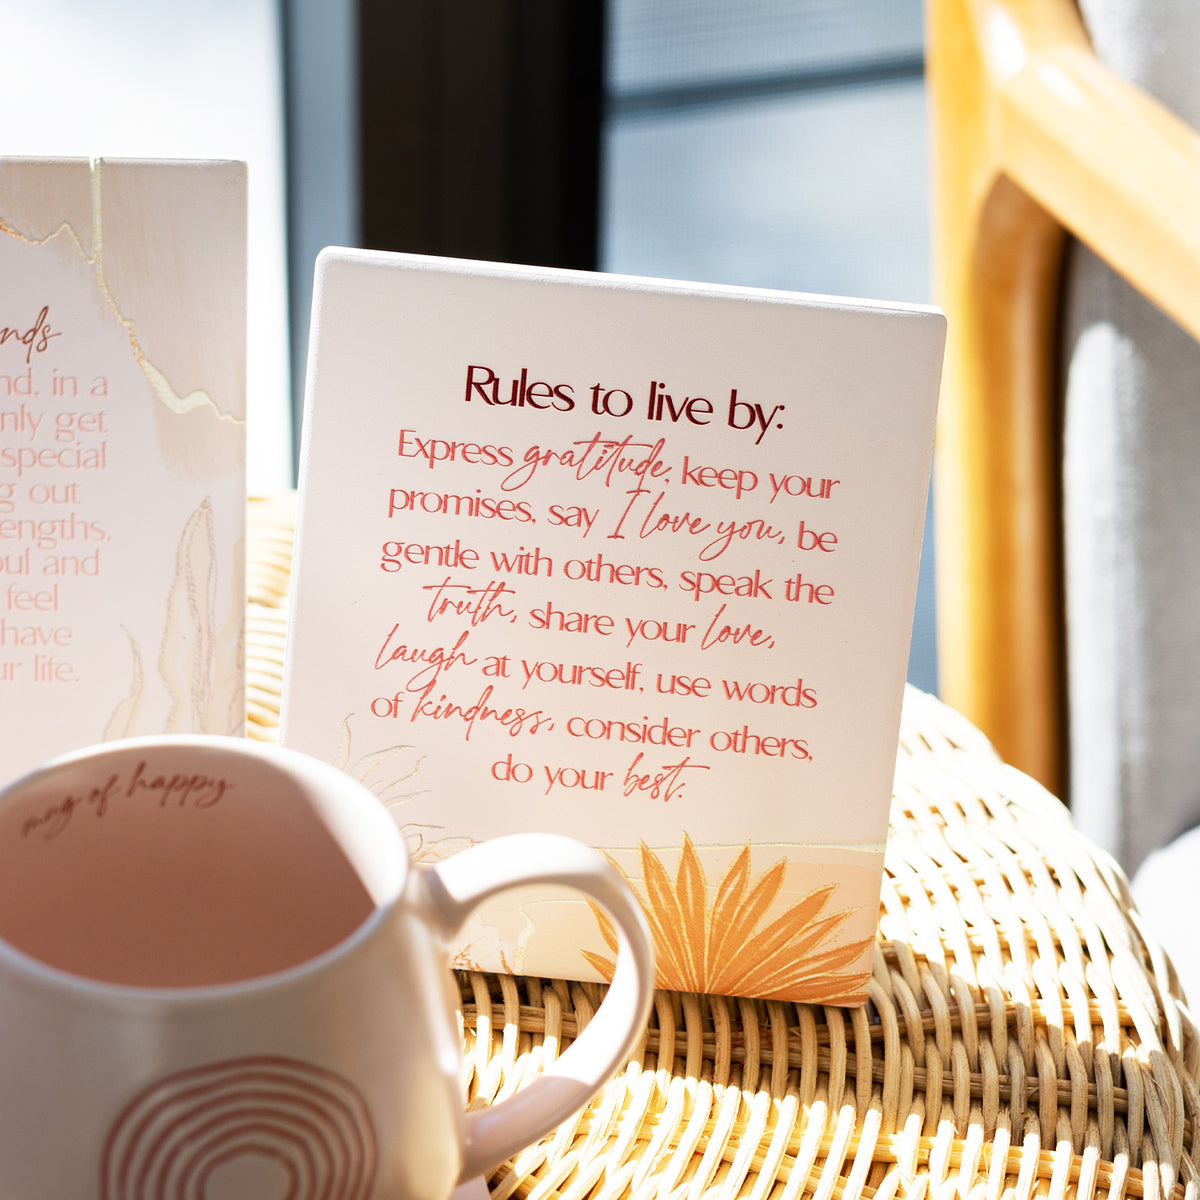 nd, in a
nly get
special
out
feel
have
life.
Rules to live by:
Express gratitude, keep your
promises, say I love you, be
gentle with others, speak the
truth, share your love,
laugh at yourself, use words
of kindness, consider others,
do your best.
mug of happy